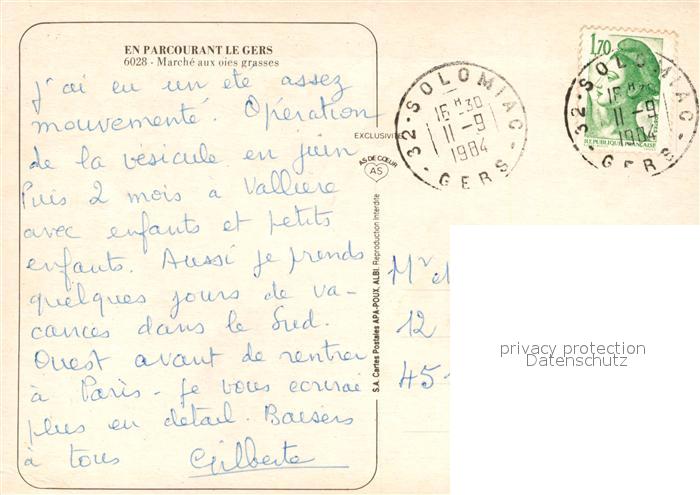 EN PARCOURANT LE GERS
6028 - Marché aux oies grasses
J'ai eu un été assez
mouvementé. Opération
de la vésicule en juin
Puis 2 mois à Vallière
avec enfants et petits
enfants. Aussi je prends
quelques jours de va-
cances dans le Sud.
Ouest avant de rentrer
à Paris - Je vous écrirai
plus en détail. Baisers
à tous Gilberte
EXCLUSIVITÉ
AS DE CŒUR
AS
S.A. Cartes Postales APA-POUX, ALBI, Reproduction Interdite
32 - SOLOMIAC - GERS
16 H 30
11 - 9
1984
1,70
REPUBLIQUE FRANÇAISE
32 - SOLOMIAC - GERS
16 H 30
11 - 9
1984
Mr
12
45
privacy protection
Datenschutz